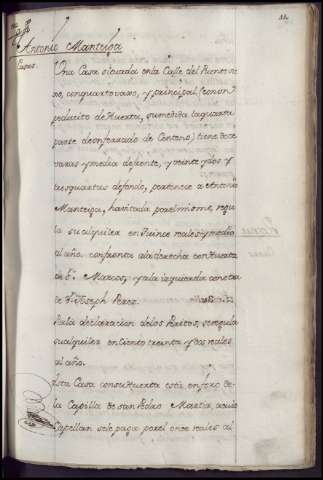 Antonio Manteiga
Casas.
Una Casa situada en la Calle del Puente nu
vo, con quarto vajo, y principal (con un
pedacito de Huerta, su medida la quarta
parte de un ferrado de Centeno) tiene doze
varas y media de frente, y veinte y dos y
tres quartas de fondo, pertenece a Antonio
Manteiga, havitada por el mismo, regu
la su alquiler en Quince reales y medio
al año. confronta a la derecha con Huerta
de Dn. Marcos, y a la izquierda con otra
de Dn. Joseph Perez.
Por la declaracion de los Peritos, se regula
su alquiler en Ciento treinta y dos reales
al año.
Esta Casa con su Huerta está en foro de
la Capilla de San Pedro Martir, a cuio
Capellan se le paga por el once reales al